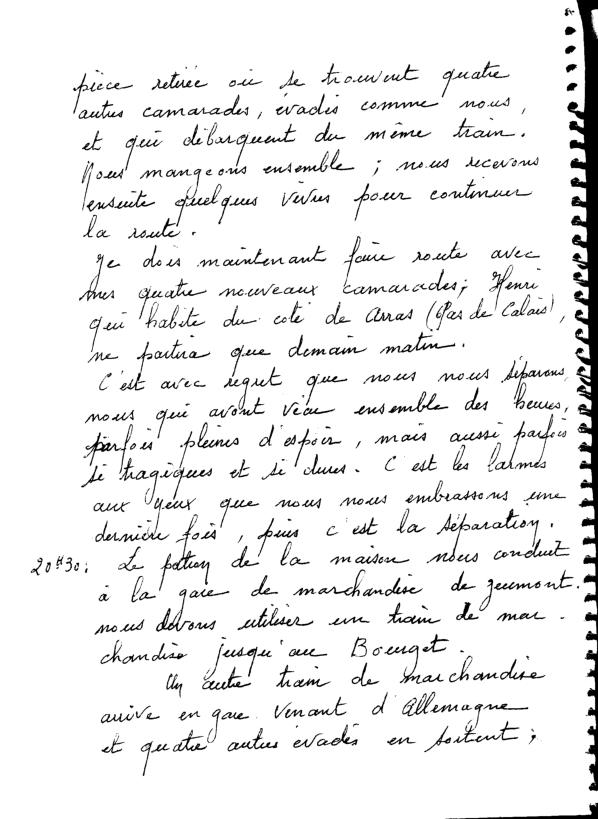 pièce retirée où se trouvent quatre
autres camarades, évadés comme nous,
et qui débarquent du même train.
Nous mangeons ensemble ; nous recevons
ensuite quelques vivres pour continuer
la route.
Je dois maintenant faire route avec
mes quatre nouveaux camarades ; Henri
qui habite du coté de Arras (Pas de Calais),
ne partira que demain matin.
C'est avec regret que nous nous séparons,
nous qui avont vécu ensemble des heures,
parfois pleines d'espoir, mais aussi parfois
si tragiques et si dures. C'est les larmes
aux yeux que nous nous embrassons une
dernière fois, puis c'est la séparation.
20H30: Le patron de la maison nous conduit
à la gare de marchandise de Jeumont.
nous devons utiliser un train de mar-
chandise jusqu'au Bourget.
Un autre train de marchandise
arrive en gare venant d'Allemagne
et quatre autres évadés en sortent ;